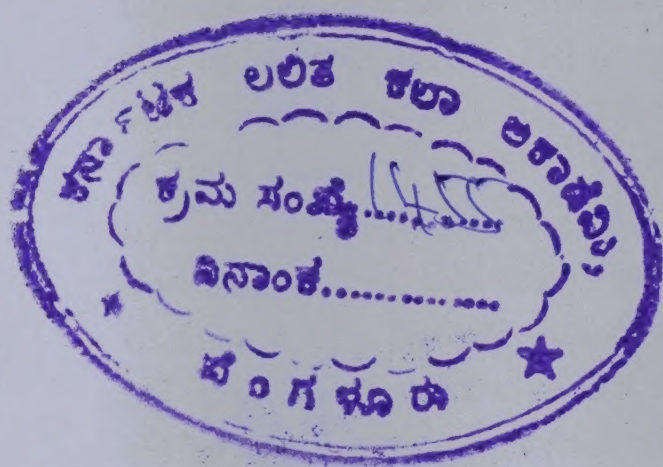 ಕರ್ನಾಟಕ ಲಲಿತ ಕಲಾ ಅಕಾಡೆಮಿ
ಕ್ರಮ ಸಂಖ್ಯೆ..........
ದಿನಾಂಕ..............
ಬೆಂಗಳೂರು